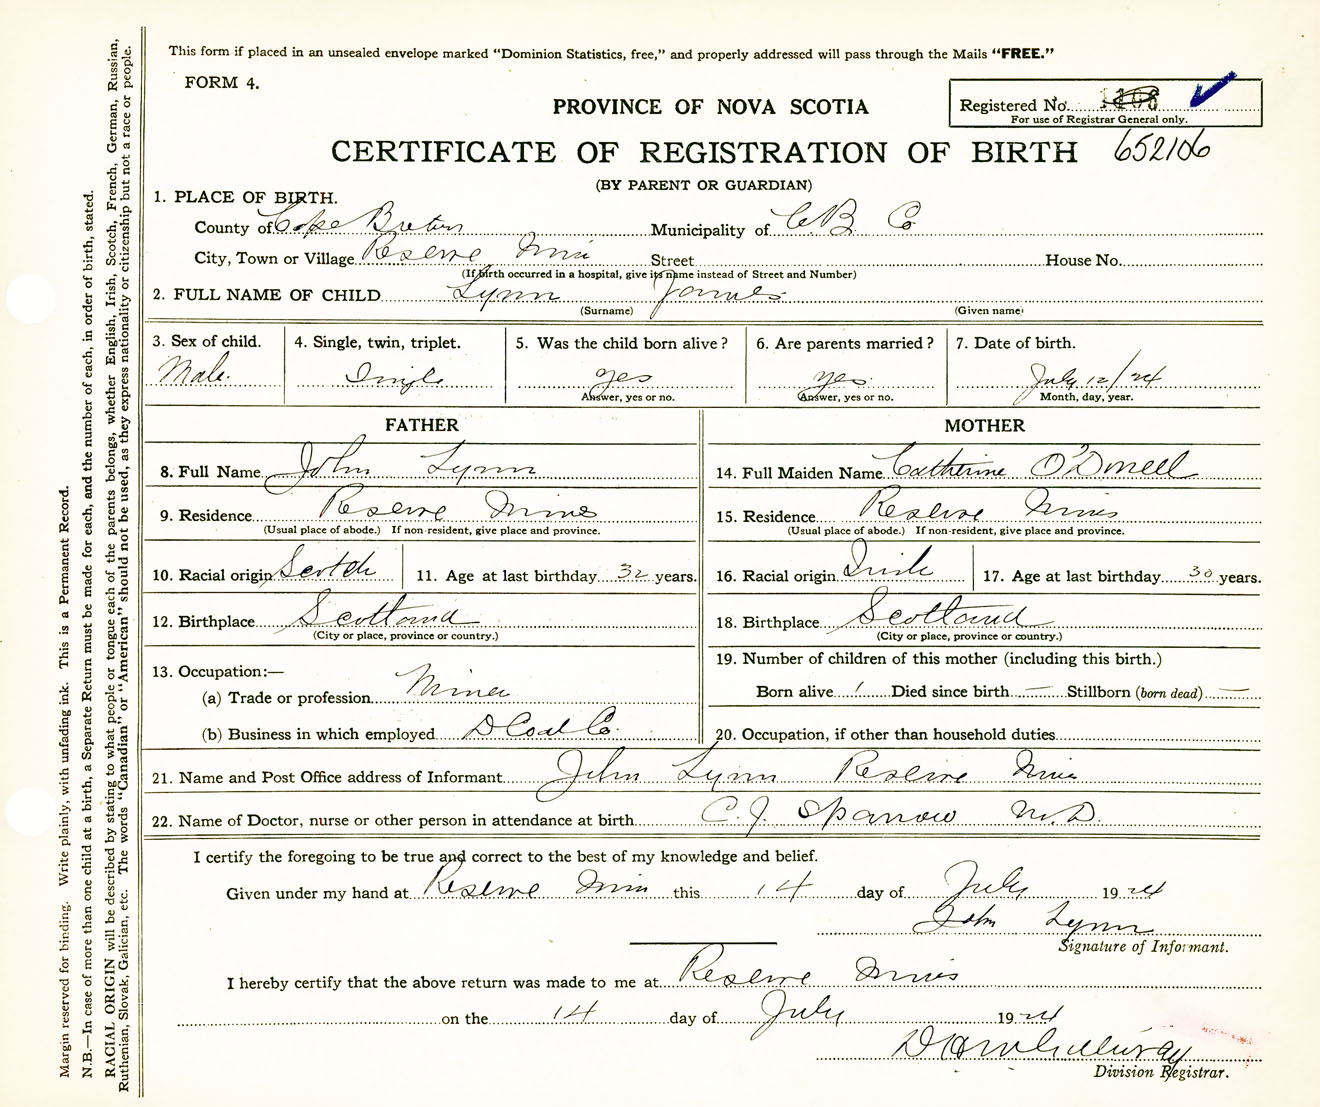 This form if placed in an unsealed envelope marked "Dominion Statistics, free," and properly addressed will pass through the Mails "FREE."
FORM 4.
PROVINCE OF NOVA SCOTIA
Registered No.
For use of Registrar General only.
CERTIFICATE OF REGISTRATION OF BIRTH 652106
(BY PARENT OR GUARDIAN)
1. PLACE OF BIRTH.
County of Cape Breton Municipality of C.B. Co
City, Town or Village Reserve Mines Street House No.
(If birth occurred in a hospital, give its name instead of Street and Number)
2. FULL NAME OF CHILD Lynn James
(Surname) (Given name)
3. Sex of child. 4. Single, twin, triplet. 5. Was the child born alive? 6. Are parents married? 7. Date of birth.
Male. Single yes yes. July 12/24
Answer, yes or no. Answer, yes or no. Month, day, year.
FATHER MOTHER
8. Full Name John Lynn 14. Full Maiden Name Catherine O'Donell
9. Residence Reserve Mines 15. Residence Reserve Mines
(Usual place of abode.) If non-resident, give place and province. (Usual place of abode.) If non-resident, give place and province.
10. Racial origin Scotch 11. Age at last birthday 32 years. 16. Racial origin Irish 17. Age at last birthday 30 years.
12. Birthplace Scotland 18. Birthplace Scotland
(City or place, province or country.) (City or place, province or country.)
13. Occupation:— 19. Number of children of this mother (including this birth.)
(a) Trade or profession Miner Born alive 1 Died since birth — Stillborn (born dead) —
(b) Business in which employed D Coal Co. 20. Occupation, if other than household duties
21. Name and Post Office address of Informant John Lynn Reserve Mines
22. Name of Doctor, nurse or other person in attendance at birth C. J. Sparrow M.D.
I certify the foregoing to be true and correct to the best of my knowledge and belief.
Given under my hand at Reserve Mines this 14 day of July 1924
John Lynn
Signature of Informant.
I hereby certify that the above return was made to me at Reserve Mines
on the 14 day of July 1924
Division Registrar.
Margin reserved for binding. Write plainly, with unfading ink. This is a Permanent Record.
N.B.—In case of more than one child at a birth, a Separate Return must be made for each, and the number of each, in order of birth, stated.
RACIAL ORIGIN will be described by stating to what people or tongue each of the parents belongs, whether English, Irish, Scotch, French, German, Russian,
Ruthenian, Slovak, Galician, etc. The words "Canadian" or "American" should not be used, as they express nationality or citizenship but not a race or people.